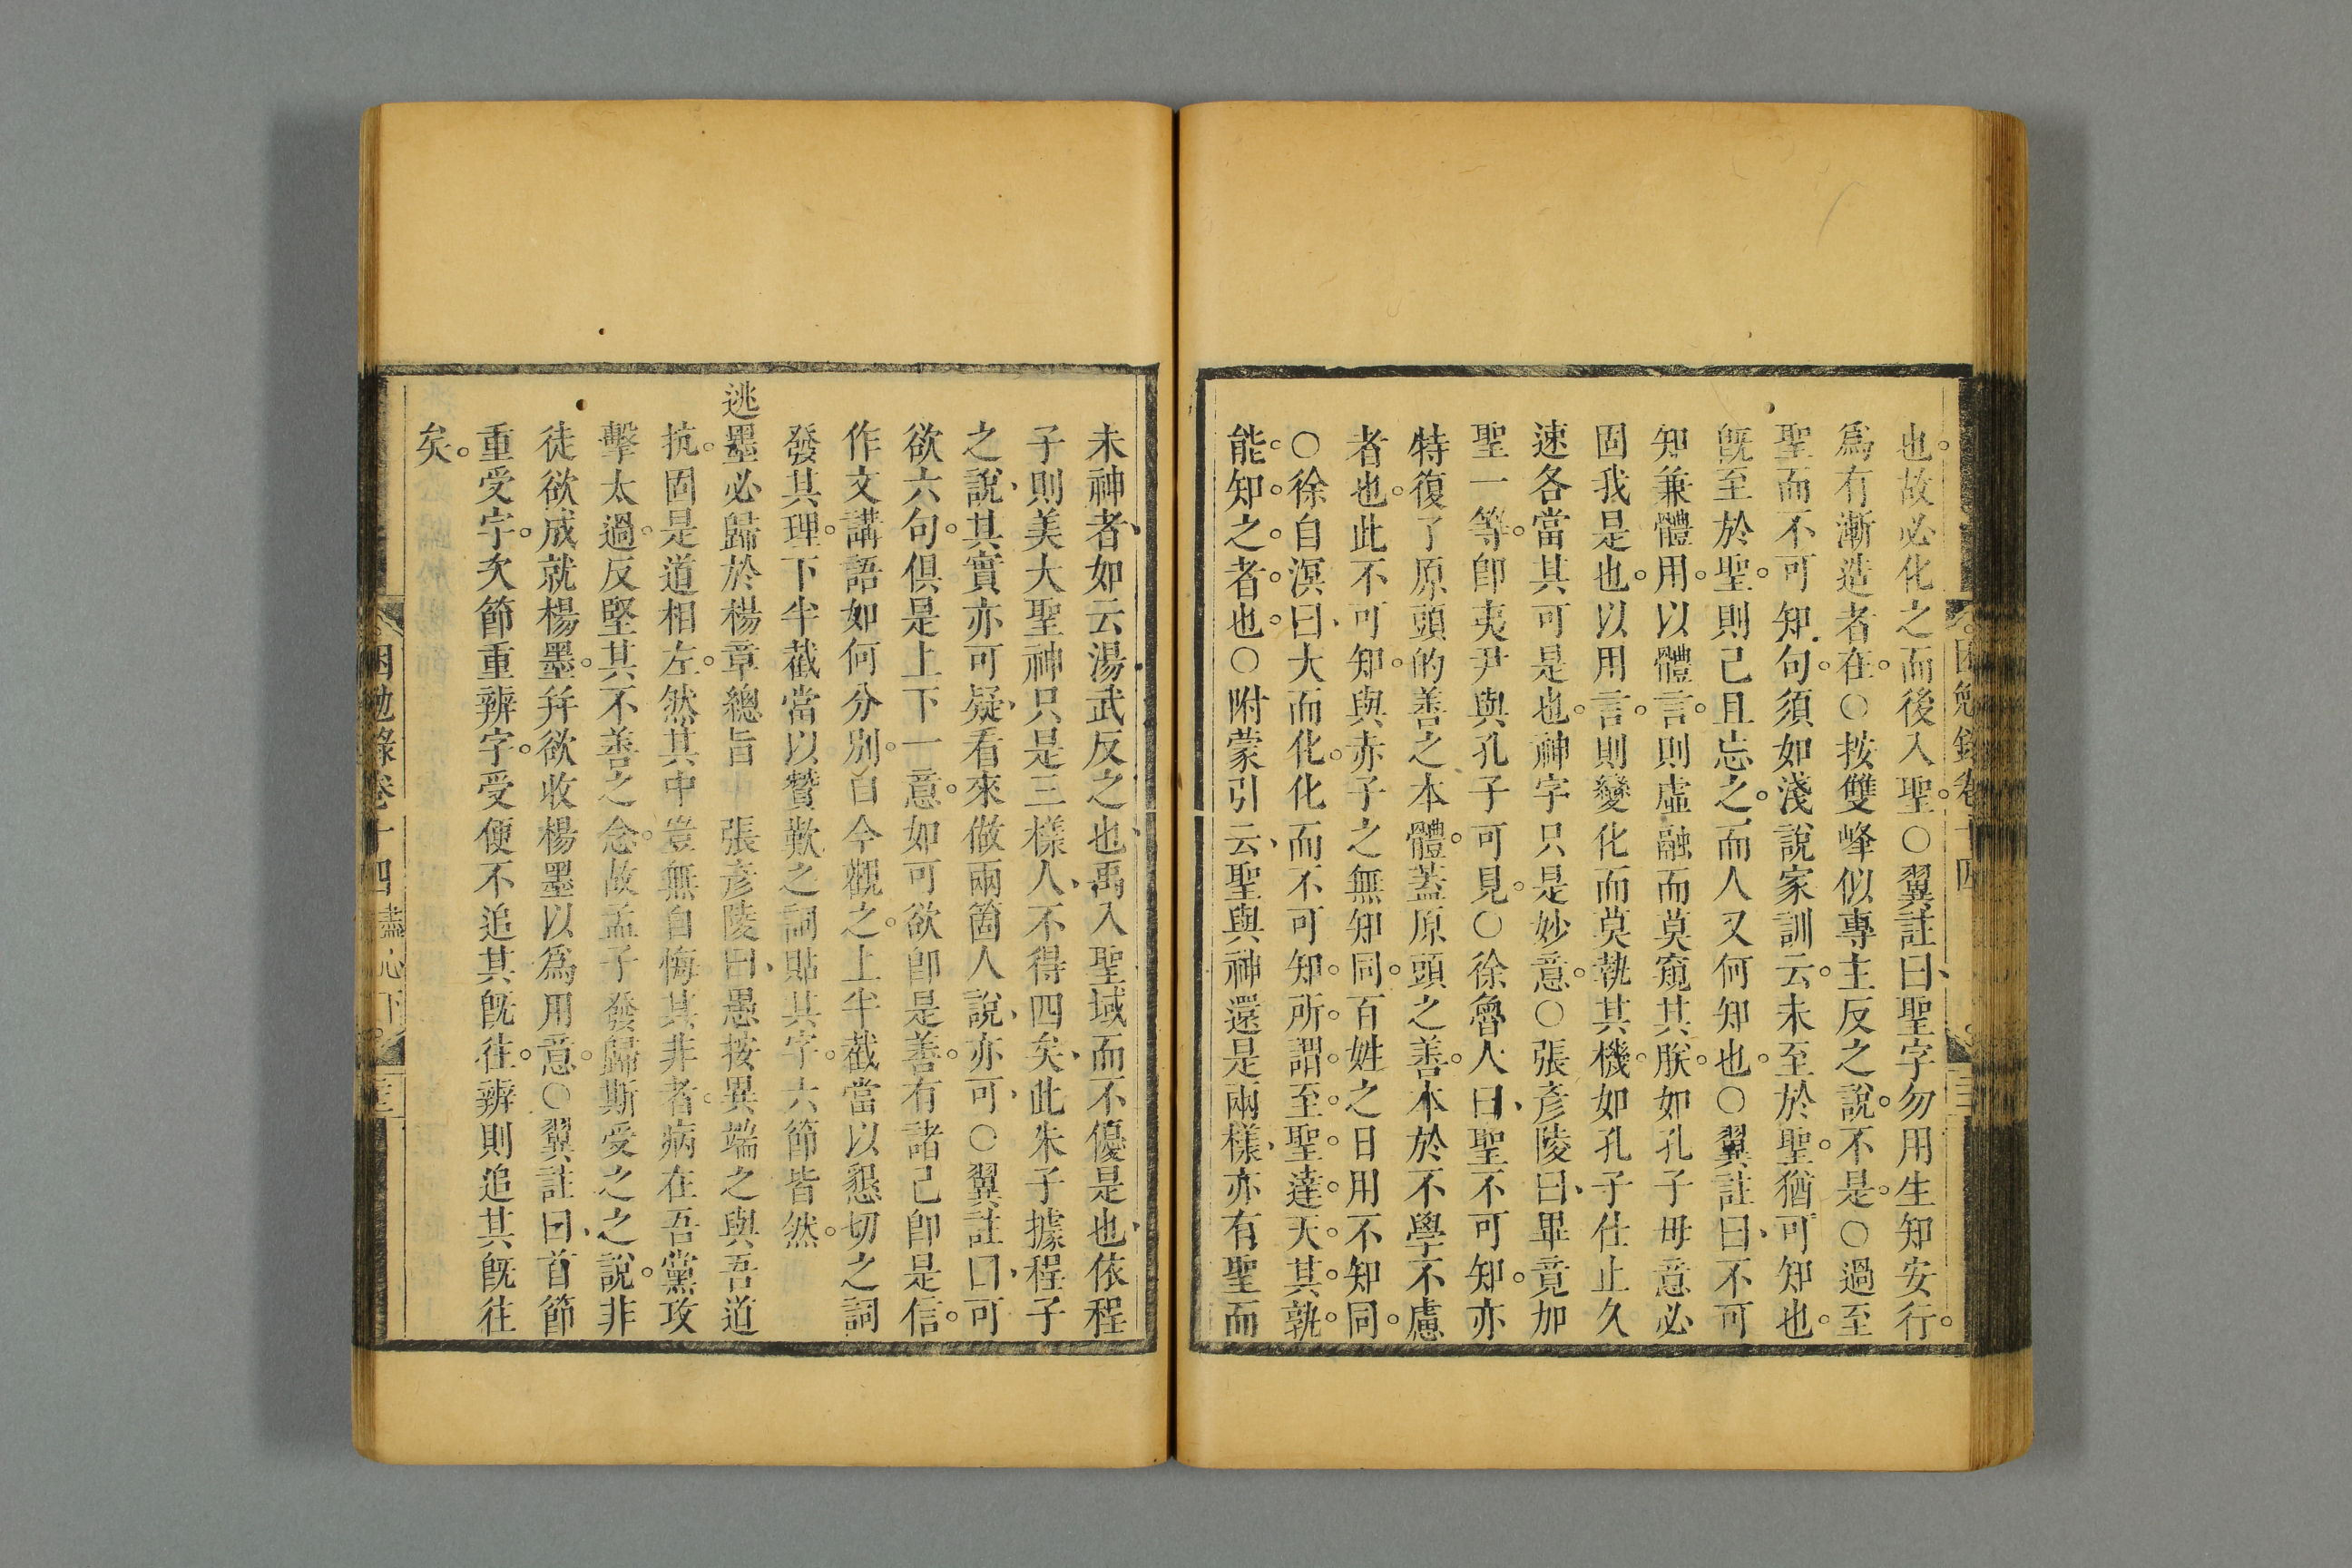 也。故必化之而後入聖。○翼註曰、聖字勿用生知安行。
爲有漸造者在。○按雙峰似專主反之說。不是。○過至
聖而不可知句。須如淺說家訓云。未至於聖。猶可知也。
旣至於聖。則己且忘之。而人又何知也。○翼註曰、不可
知兼體用。以體言。則虛融而莫窺其朕。如孔子毋意必
固我是也。以用言。則變化而莫執其機。如孔子仕止久
速各當其可是也。神字只是妙意。○張彥陵曰、畢竟加
聖一等。卽夷尹與孔子可見。○徐魯人曰、聖不可知。亦
特復了原頭的善之本體。蓋原頭之善。本於不學不慮
者也。此不可知。與赤子之無知同。百姓之日用不知同。
○徐自溟曰、大而化。化而不可知。所。謂。至。聖。達。天。其。孰。
能。知。之。者。也。○附蒙引云、聖與神還是兩樣、亦有聖而
未神者、如云湯武反之也、禹入聖域而不優是也、依程
子則美大聖神只是三樣人、不得四矣、此朱子據程子
之說、其實亦可疑、看來做兩箇人說、亦可、○翼註曰、可
欲六句。俱是上下一意。如可欲卽是善。有諸己卽是信。
作文講語如何分別。自今觀之。上半截當以懇切之詞
發其理。下半截當以贊歎之詞貼其字。六節皆然。
逃墨必歸於楊章總旨 張彥陵曰、愚按異端之與吾道
抗。固是道相左。然其中豈無自悔其非者。病在吾黨攻
擊太過。反堅其不善之念。故孟子發歸斯受之之說。非
徒欲成就楊墨。幷欲收楊墨以爲用意。○翼註曰、首節
重受字。次節重辨字。受便不追其旣往。辨則追其旣往
矣。
困勉錄卷十四 盡心下